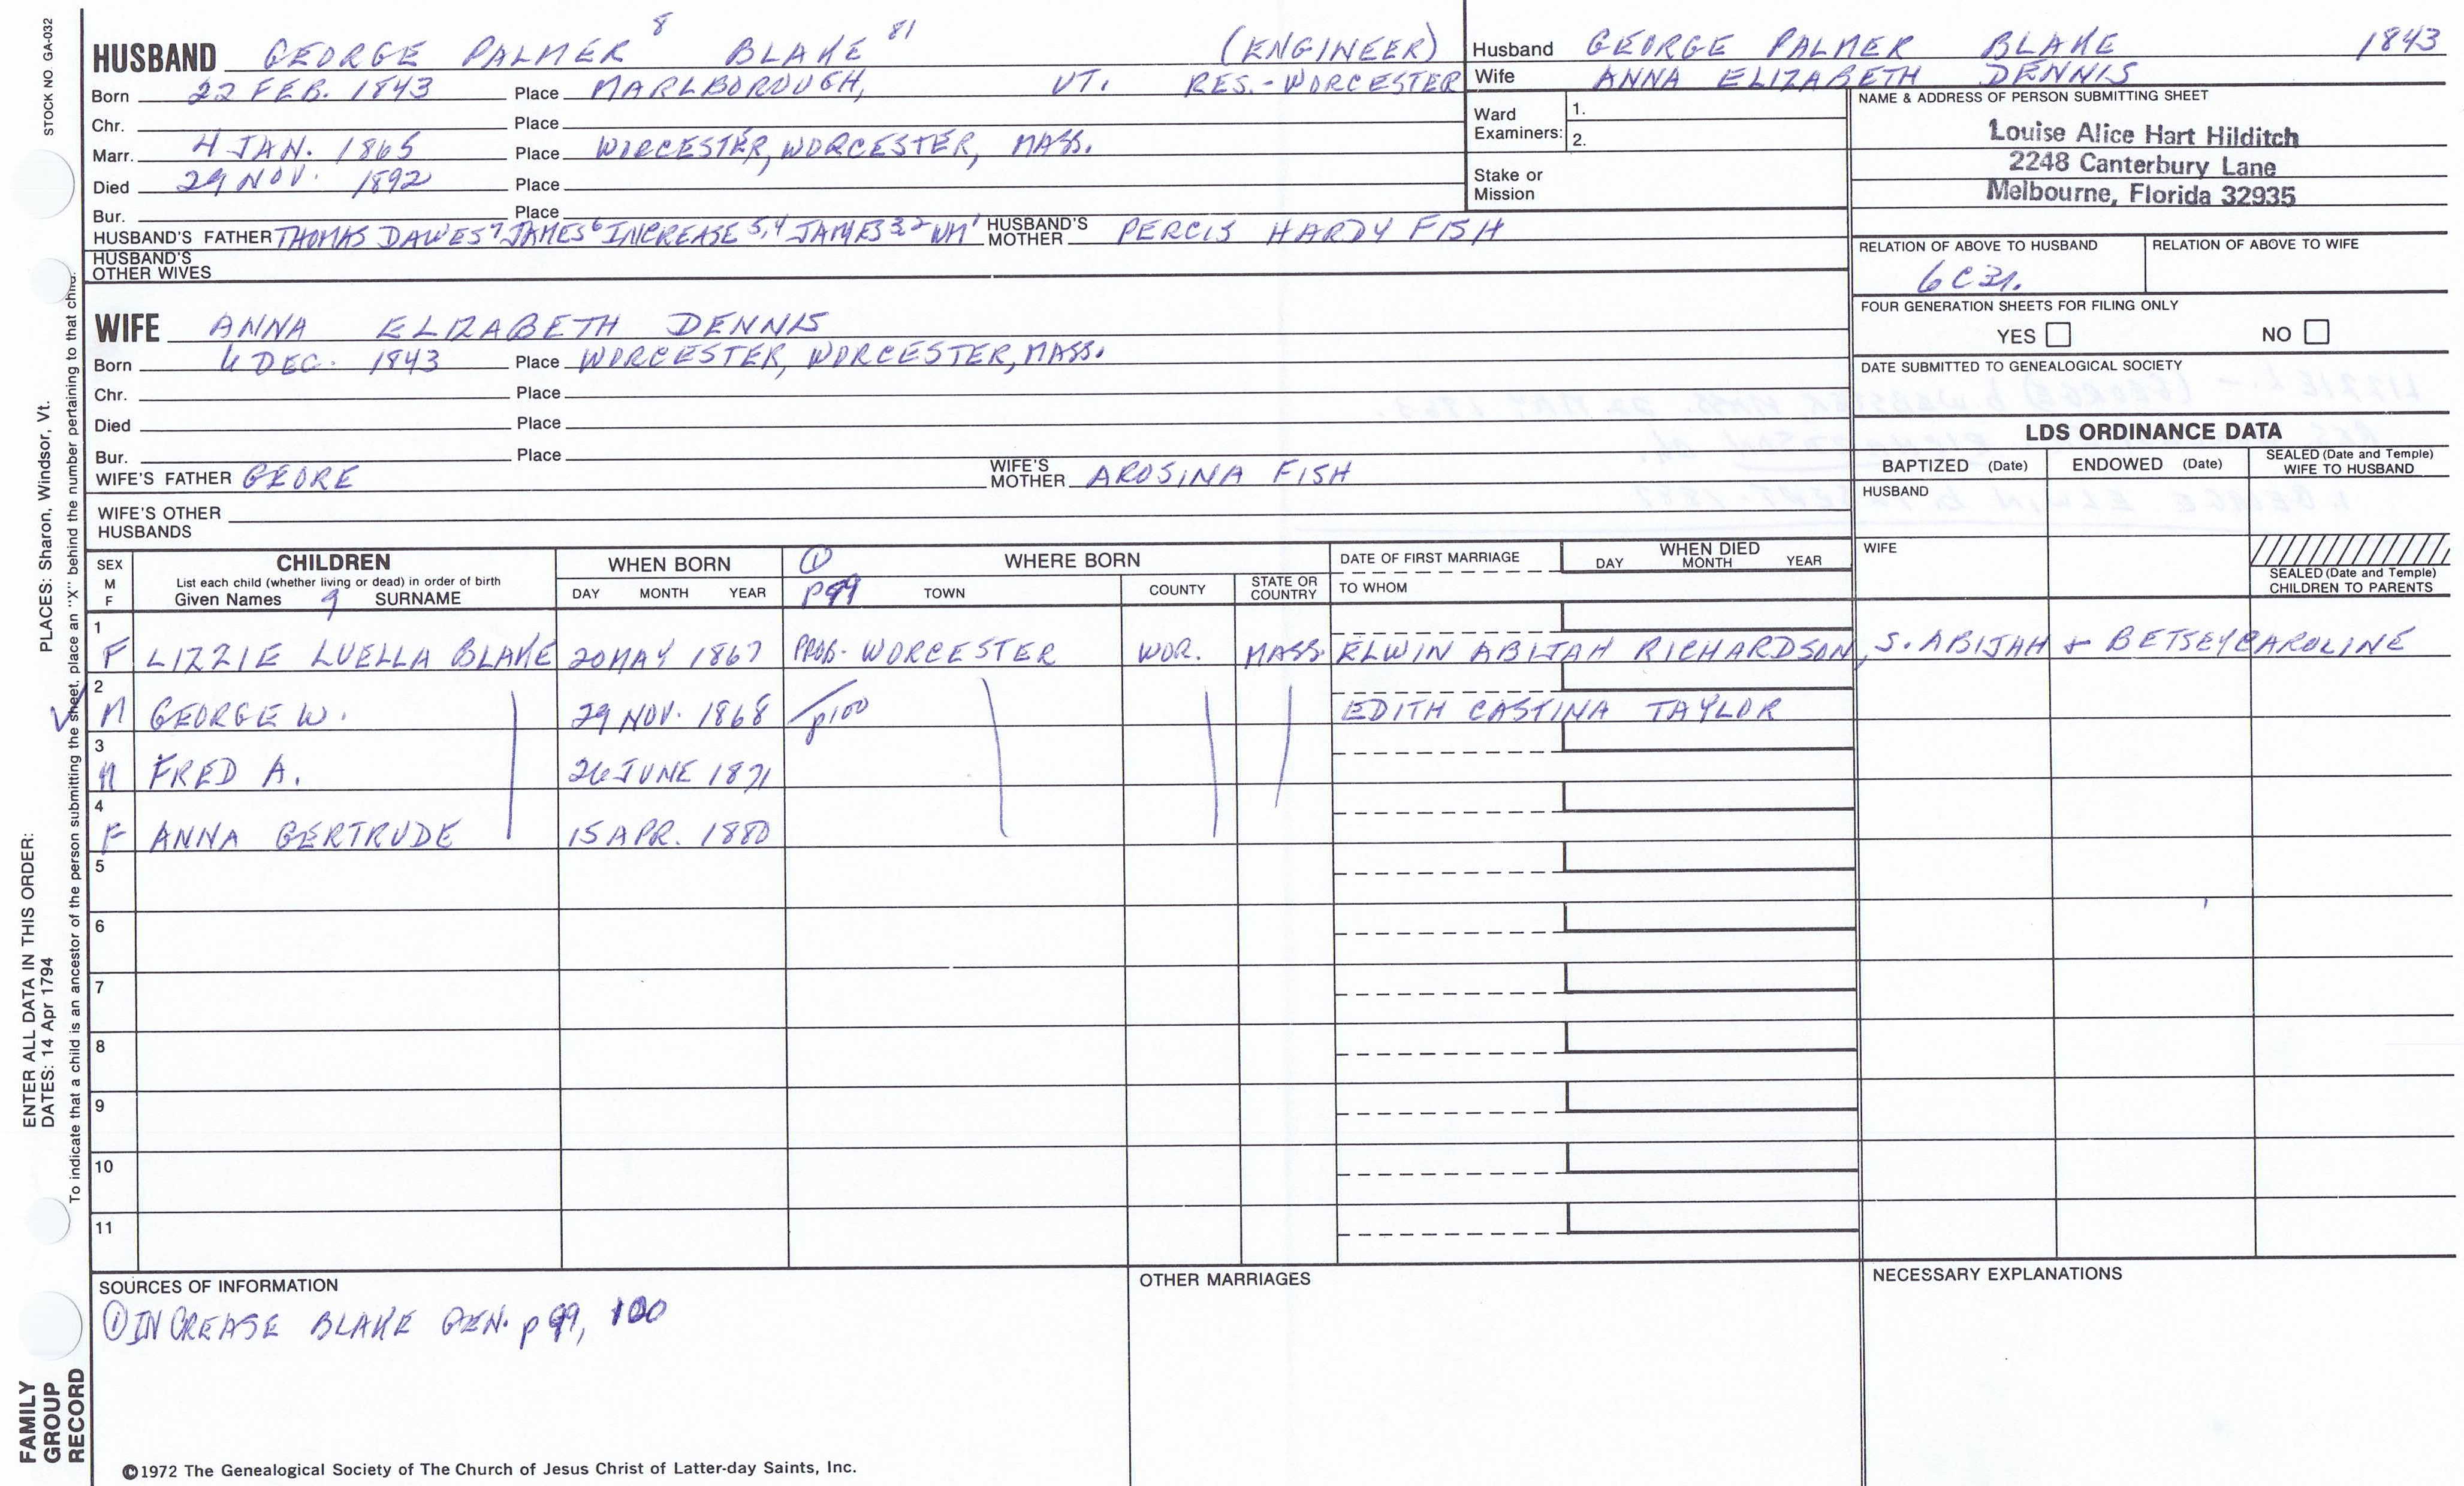 STOCK NO. GA-032
HUSBAND GEORGE PALMER 8 BLAKE 81 (ENGINEER)
Born 22 FEB. 1843 Place MARLBOROUGH, VT. RES.-WORCESTER
Chr. Place
Marr. 4 JAN. 1865 Place WORCESTER, WORCESTER, MASS.
Died 29 NOV. 1892 Place
Bur. Place
HUSBAND'S FATHER THOMAS DAWES 7 JAMES 6 INCREASE 5,4 JAMES 3,2 WM 1 HUSBAND'S MOTHER PERCIS HARDY FISH
HUSBAND'S OTHER WIVES
Husband GEORGE PALMER BLAKE 1843
Wife ANNA ELIZABETH DENNIS
Ward Examiners: 1.
2.
Stake or Mission
NAME & ADDRESS OF PERSON SUBMITTING SHEET
Louise Alice Hart Hilditch
2248 Canterbury Lane
Melbourne, Florida 32935
RELATION OF ABOVE TO HUSBAND RELATION OF ABOVE TO WIFE
FOUR GENERATION SHEETS FOR FILING ONLY
YES NO
DATE SUBMITTED TO GENEALOGICAL SOCIETY
WIFE ANNA ELIZABETH DENNIS
Born DEC. 1843 Place WORCESTER, WORCESTER, MASS.
Chr. Place
Died Place
Bur. Place
WIFE'S FATHER GEORE WIFE'S MOTHER AROSINA FISH
WIFE'S OTHER HUSBANDS
LDS ORDINANCE DATA
BAPTIZED (Date) ENDOWED (Date) SEALED (Date and Temple) WIFE TO HUSBAND
HUSBAND
WIFE
SEALED (Date and Temple) CHILDREN TO PARENTS
SEX M F
CHILDREN
List each child (whether living or dead) in order of birth
Given Names 9 SURNAME
WHEN BORN
DAY MONTH YEAR
① WHERE BORN
p99 TOWN COUNTY STATE OR COUNTRY
DATE OF FIRST MARRIAGE
TO WHOM
WHEN DIED
DAY MONTH YEAR
1 F LIZZIE LUELLA BLAKE 20 MAY 1867 PROB- WORCESTER WOR. MASS. ELWIN ABIJAH RICHARDSON, S. ABIJAH + BETSEY CAROLINE
2 M GEORGE W. 29 NOV. 1868 p100 EDITH CASTINA TAYLOR
3 M FRED A. 26 JUNE 1871
4 F ANNA GERTRUDE 15 APR. 1880
5
6
7
8
9
10
11
SOURCES OF INFORMATION
① INCREASE BLAKE GEN. p 99, 100
OTHER MARRIAGES
NECESSARY EXPLANATIONS
©1972 The Genealogical Society of The Church of Jesus Christ of Latter-day Saints, Inc.
FAMILY GROUP RECORD
ENTER ALL DATA IN THIS ORDER:
DATES: 14 Apr 1794
PLACES: Sharon, Windsor, Vt.
To indicate that a child is an ancestor of the person submitting the sheet, place an "X" behind the number pertaining to that child.